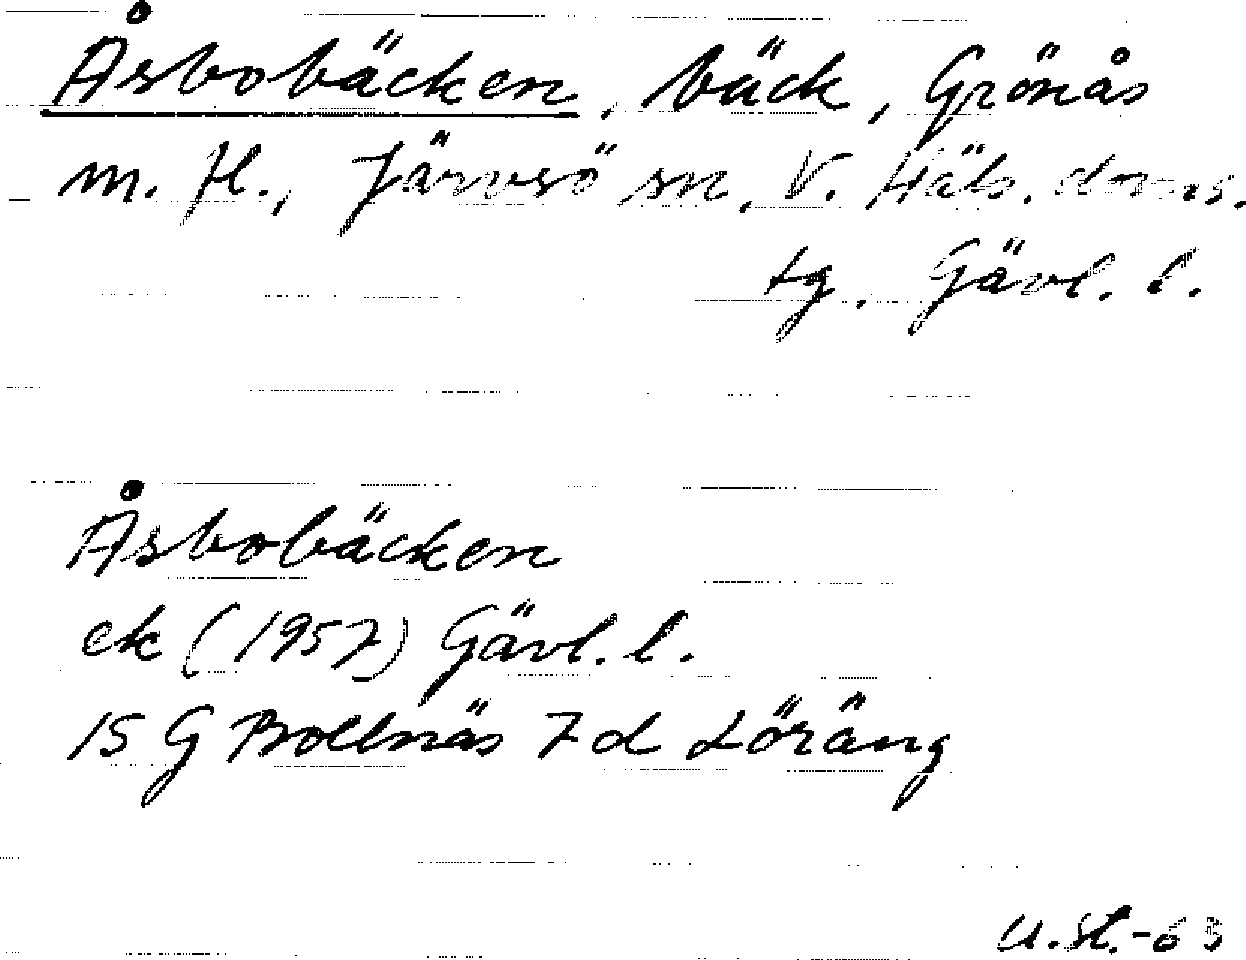 Åsbobäcken, bäck, Grönås
m. fl., Järvsö sn, V. Häls. doms.
tg. Gävl. l.
Åsbobäcken
ek (1957) Gävl. l.
15 G Bollnäs 7 d Löräng
U.St.-63